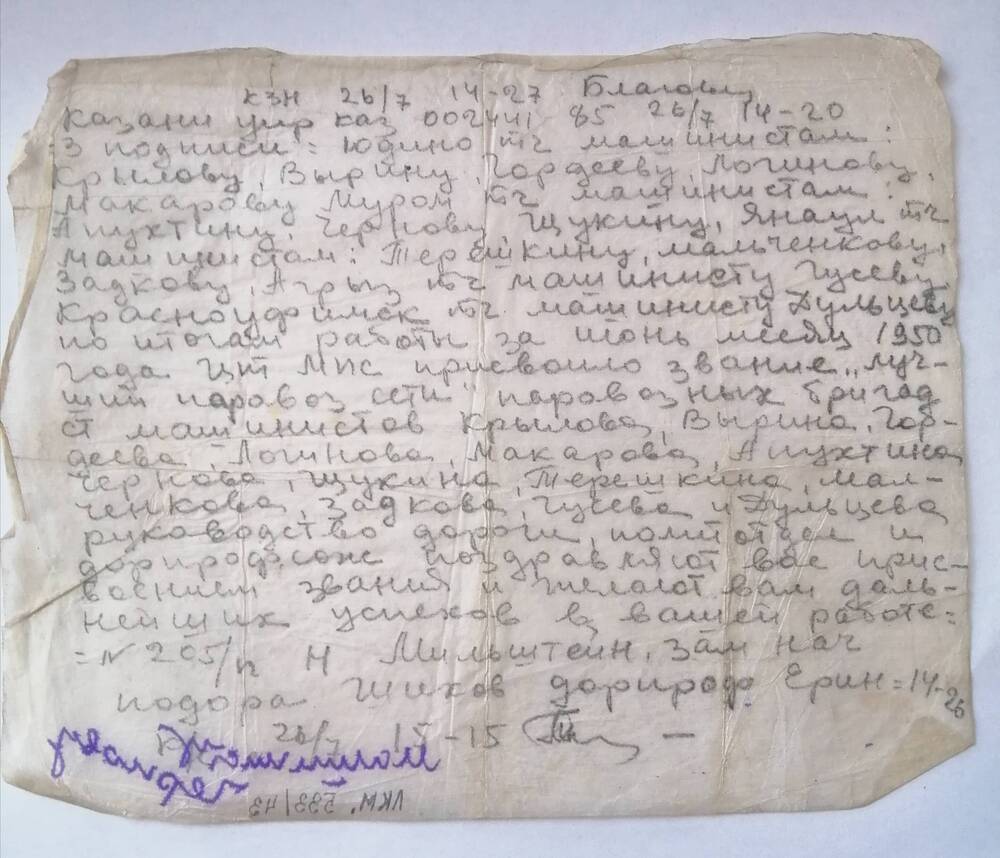 КЗН 26/7 14-27 Благовещ
Казани упр каз 002441 85 26/7 14-20
= 3 подписи = Юдино тч машинистам:
Крылову, Вырину, Гордееву, Логинову,
Макарову Муром тч машинистам:
Апухтину, Чернову, Щукину, Янаул тч
машинистам: Терешкину, мальченкову,
Задкову, Агрыз тч машинисту Гусеву,
Красноуфимск тч машинисту Дульцеву
по итогам работы за июнь месяц 1950
года цт МПС присвоило звание „луч-
ший паровоз сети" паровозных бригад
ст машинистов Крылова, Вырина, Гор-
деева, Логинова, Макарова, Апухтина
Чернова, Щукина, Терешкина, мал-
ченкова, Задкова, Гусева и Дульцева
руководство дороги, политотдел и
дорпрофсож поздравляют вас прис-
воением звания и желают вам даль-
нейших успехов в вашей работе =
= N 205/п Н Мильштеин, зам нач
подора Шихов дорпроф. Ерин = 14-26
26/7 15-15
УКМ. 583/43